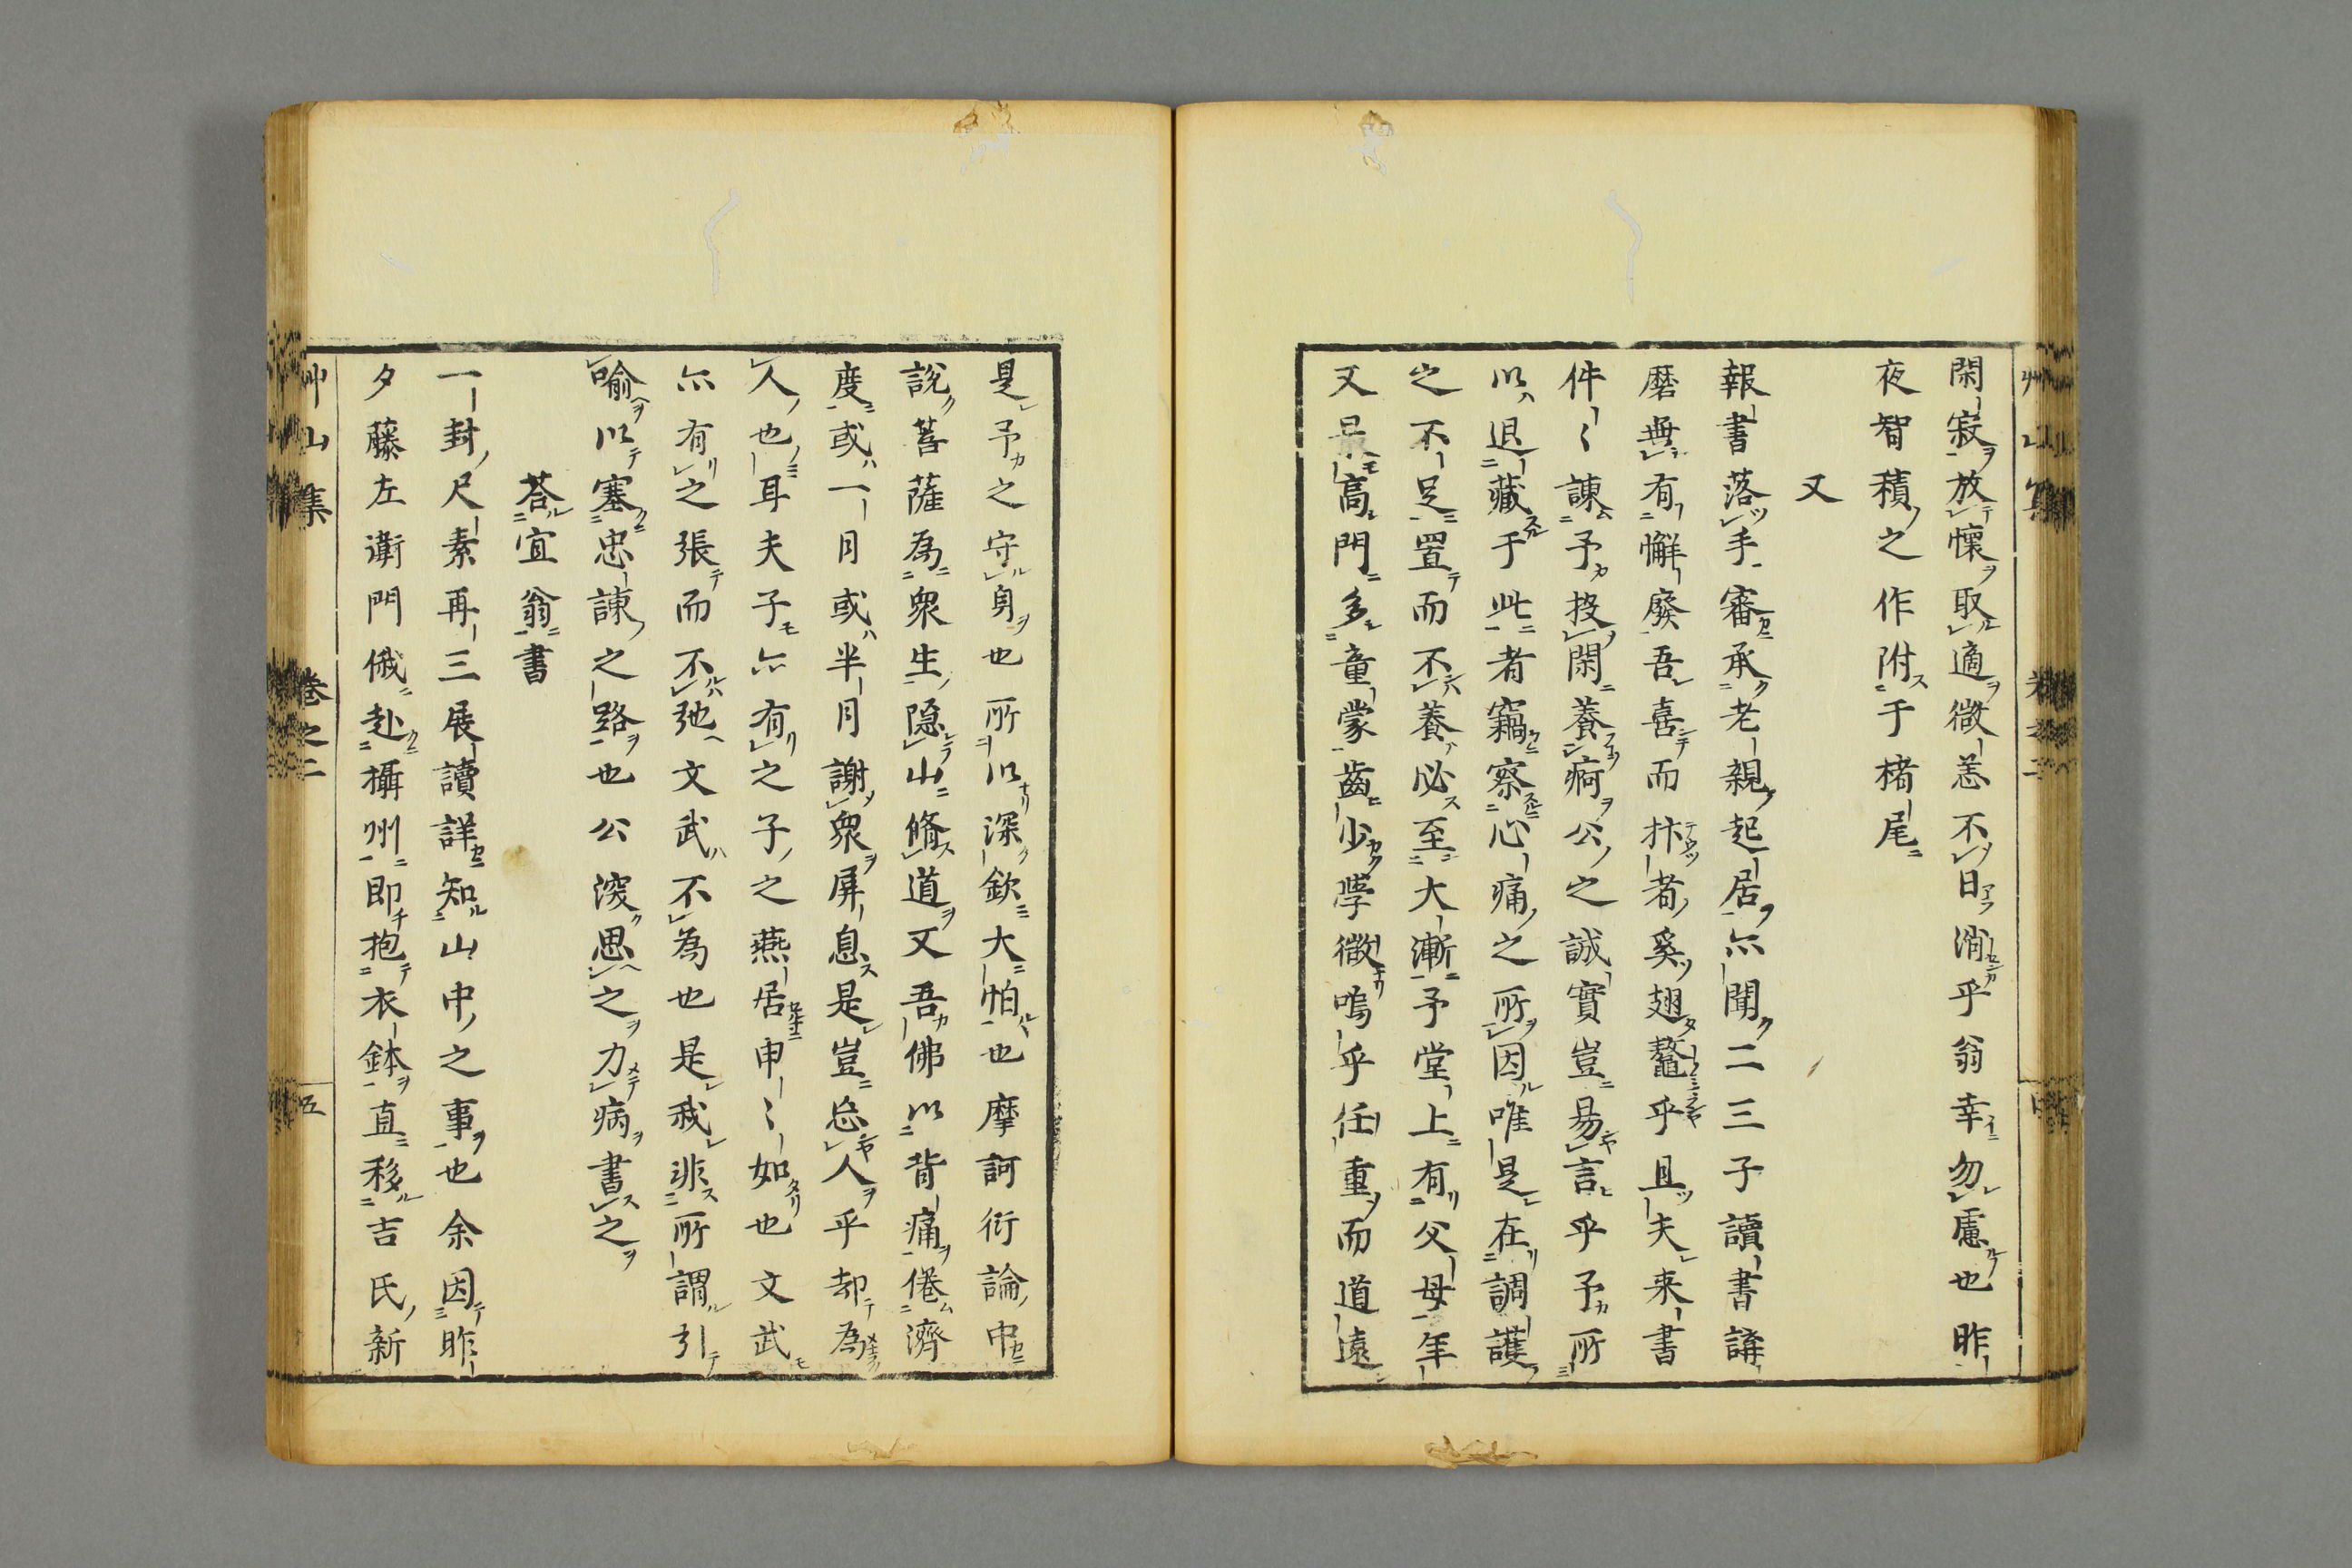 閑寂放懷取適微恙不日瀉乎翁幸勿慮也昨
夜智積之作附于楮尾
又
報書落手審承老親起居亦聞二三子讀書講
磨無有懈廢吾喜而抃者奚翅鼇乎且夫来書
件〻諫予投閑養痾公之誠實豈易言乎予所
以退藏于此者竊察心痛之所因唯是在調護
之不足置而不養必至大漸予堂上有父母年
又最高門多童蒙齒少學微嗚乎任重而道遠
是予之守身也所以深欽大怕也摩訶衍論中
說菩薩為衆生隱山脩道又吾佛以背痛倦濟
度或一月或半月謝衆屏息是豈忘人乎却為
人也耳夫子亦有之子之燕居申〻如也文武
亦有之張而不弛文武不為也是我非所謂引
喻以塞忠諫之路也公深思之力病書之
荅宜翁書
一封尺素再三展讀詳知山中之事也余因昨
夕藤左衛門俄赴攝州即抱衣鉢直移吉氏新
艸山集 卷之二 五